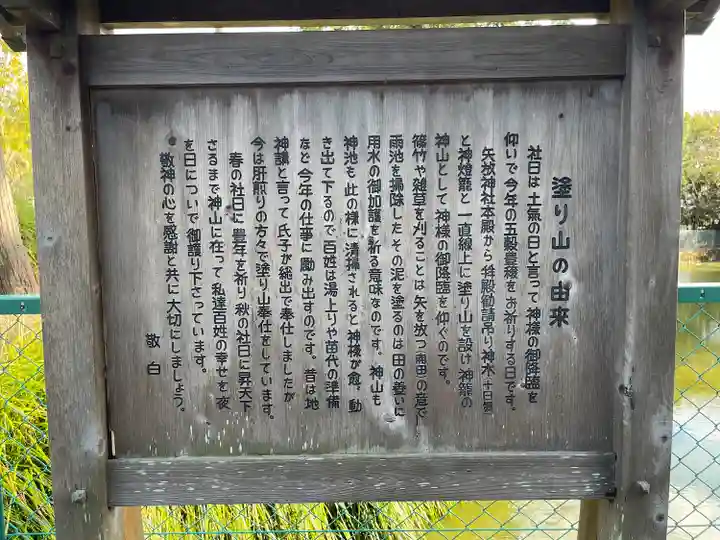 塗り山の由来
社日は土氣の日と言って神様の御降臨を
仰いで今年の五穀豊穣をお祈りする日です。
矢放神社本殿から拜殿勧請吊り神木
と神燈籠と一直線上に塗り山を設け神籠の
神山として神様の御降臨を仰ぐのです。
篠竹や雑草を刈ることは矢を放つ の意で
雨池を掃除したその泥を塗るのは田の養いに
用水の御加護を祈る意味なのです。神山も
神池も此の様に清掃されると神様が愈々動
き出て下るので百姓は湯上りや苗代の準備
など今年の仕事に励み出すのです。昔は地
神講と言って氏子が総出で奉仕しましたが
今は肝煎りの方々で塗り山奉仕をしています。
春の社日に豊年を祈り秋の社日に昇天下
さるまで神山に在って私達百姓の幸せを夜
を日についで御護り下さっています。
敬神の心を感謝と共に大切にしましょう。
敬白